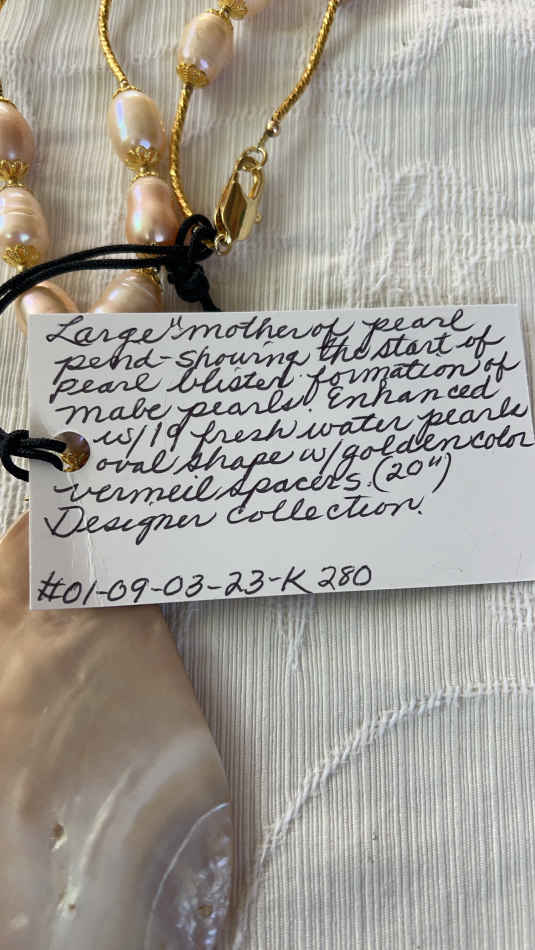 Large "mother of pearl
pend-showing the start of
pearl blister formation of
mabe pearls. Enhanced
w/19 fresh water pearls
oval shape w/golden color
vermeil spacers. (20")
Designer collection.
#01-09-03-23-K 280